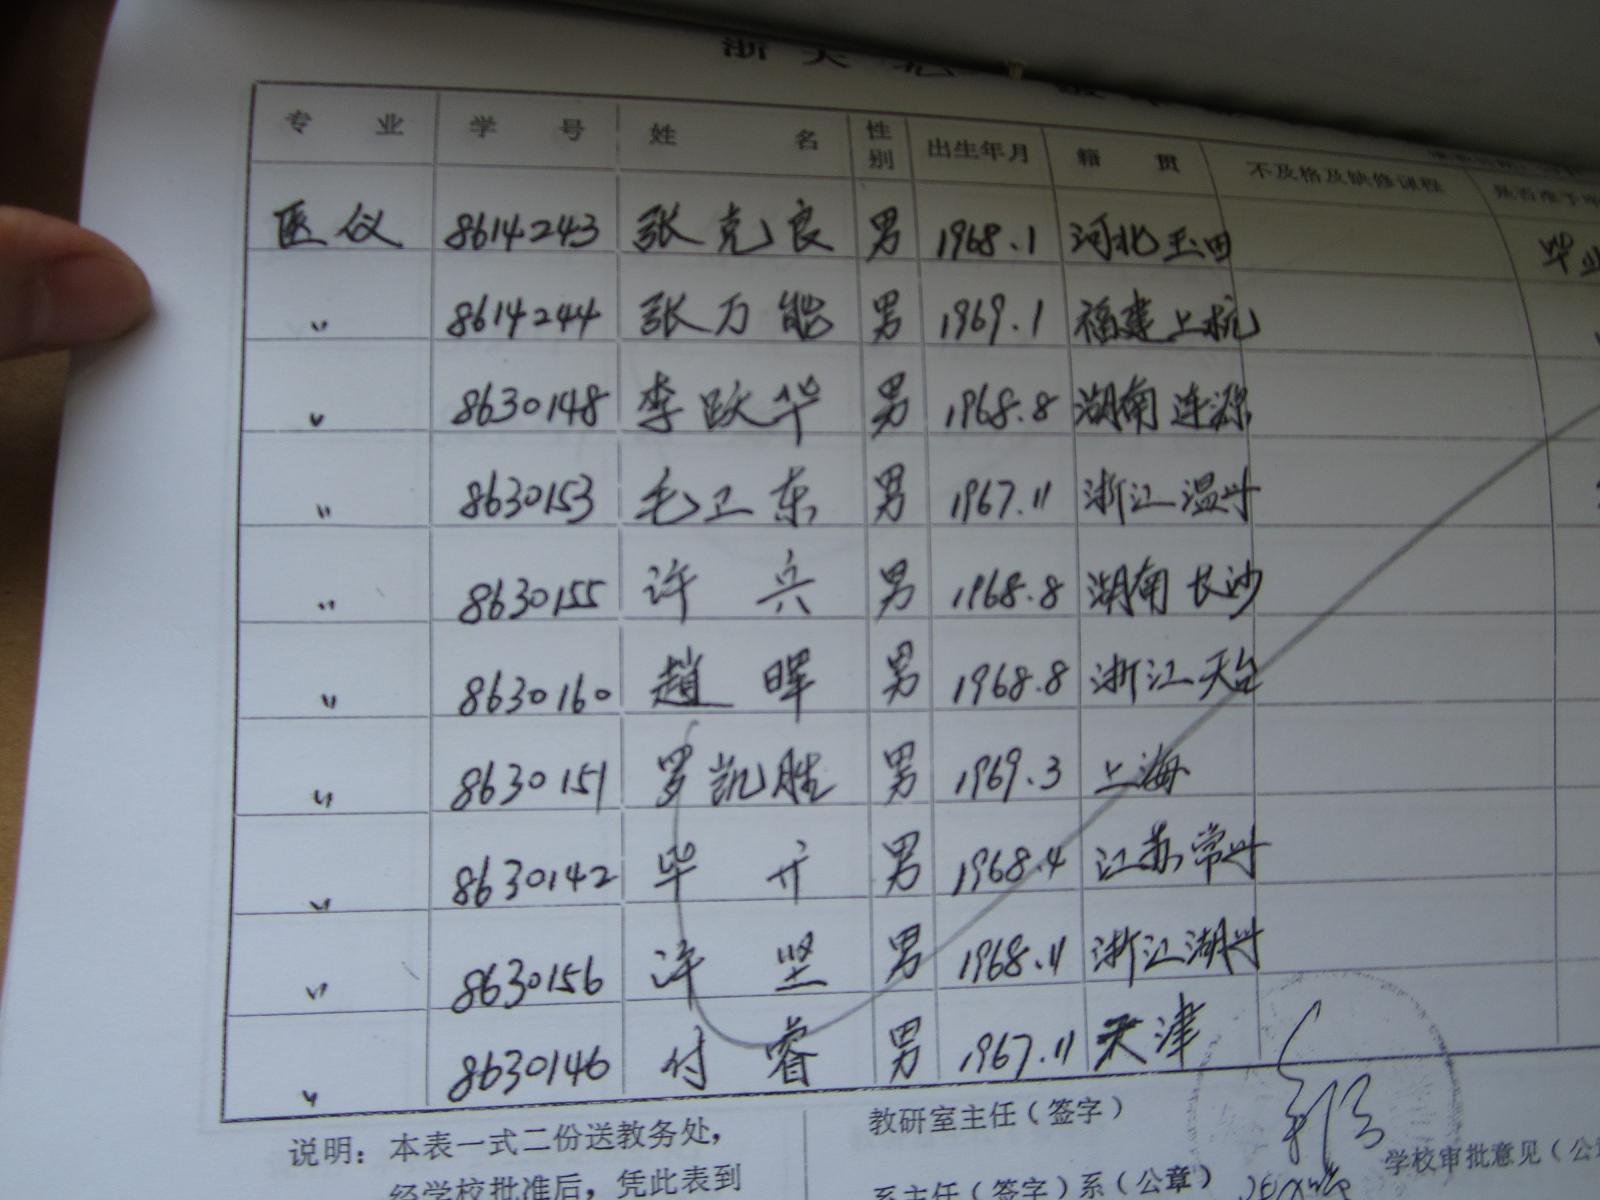 浙大
专 业 学 号 姓 名 性别 出生年月 籍 贯 不及格及缺修课程 是否准予毕
医仪 8614243 张克良 男 1968.1 河北玉田 毕业
〃 8614244 张万能 男 1969.1 福建上杭
〃 8630148 李跃华 男 1968.8 湖南涟源
〃 8630153 毛卫东 男 1967.11 浙江温州
〃 8630155 许兵 男 1968.8 湖南长沙
〃 8630160 趙晖 男 1968.8 浙江天台
〃 8630151 罗凯胜 男 1969.3 上海
〃 8630142 毕开 男 1968.4 江苏常州
〃 8630156 许坚 男 1968.11 浙江湖州
〃 8630146 付睿 男 1967.11 天津
说明：本表一式二份送教务处，
经学校批准后，凭此表到
教研室主任（签字）
系主任（签字）系（公章）
学校审批意见（公章